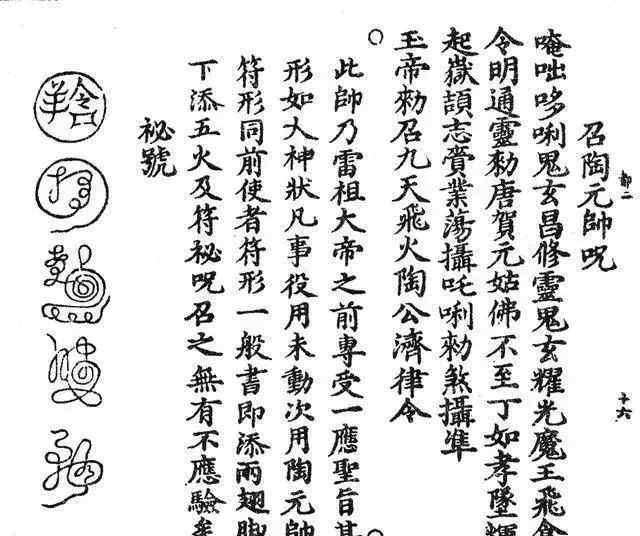 部二
十六
召陶元帥呪
唵咄哆唎鬼玄昌修靈鬼玄耀光魔王飛食
令明通靈勑唐賀元姑佛不至丁如孝墜輝
起嶽頡志賷業蕩攝吒唎勑煞攝準
玉帝勑召九天飛火陶公濟律令
此帥乃雷祖大帝之前專受一應聖旨其
形如人神狀凡事役用未動次用陶元帥
符形同前使者符形一般書即添兩翅脚
下添五火及符祕呪召之無有不應驗矣
祕號